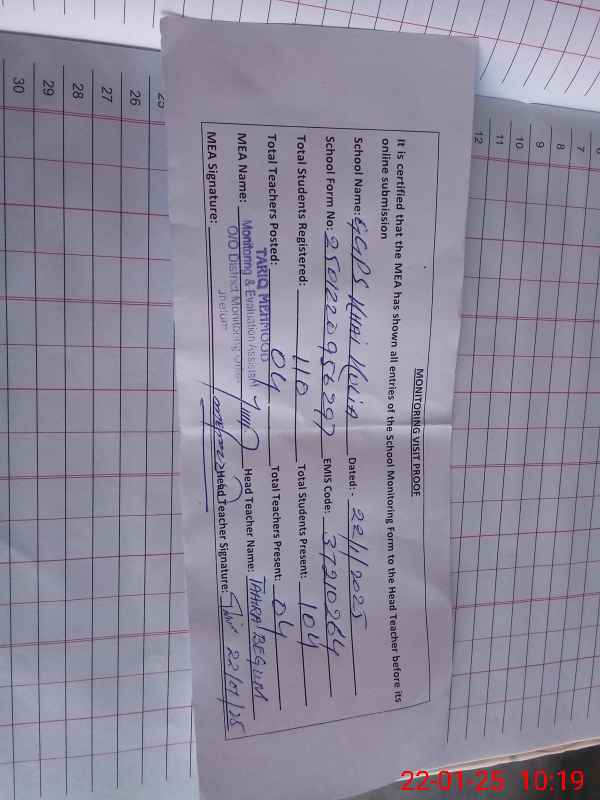 MONITORING VISIT PROOF
It is certified that the MEA has shown all entries of the School Monitoring Form to the Head Teacher before its
online submission
School Name: GGPS KHAI KOLIA Dated: - 22/1/2025
School Form No: 250122095629? EMIS Code: 37210264
Total Students Registered: 110 Total Students Present: 104
Total Teachers Posted: 04 Total Teachers Present: 04
MEA Name: TARIQ MEHMOOD Head Teacher Name: TAHIRA BEGUM
Monitoring & Evaluation Assistant
O/O District Monitoring Officer
Jhelum
MEA Signature: Head Teacher Signature: 22/01/25
6
7
8
9
10
11
12
25
26
27
28
29
30
22-01-25 10:19